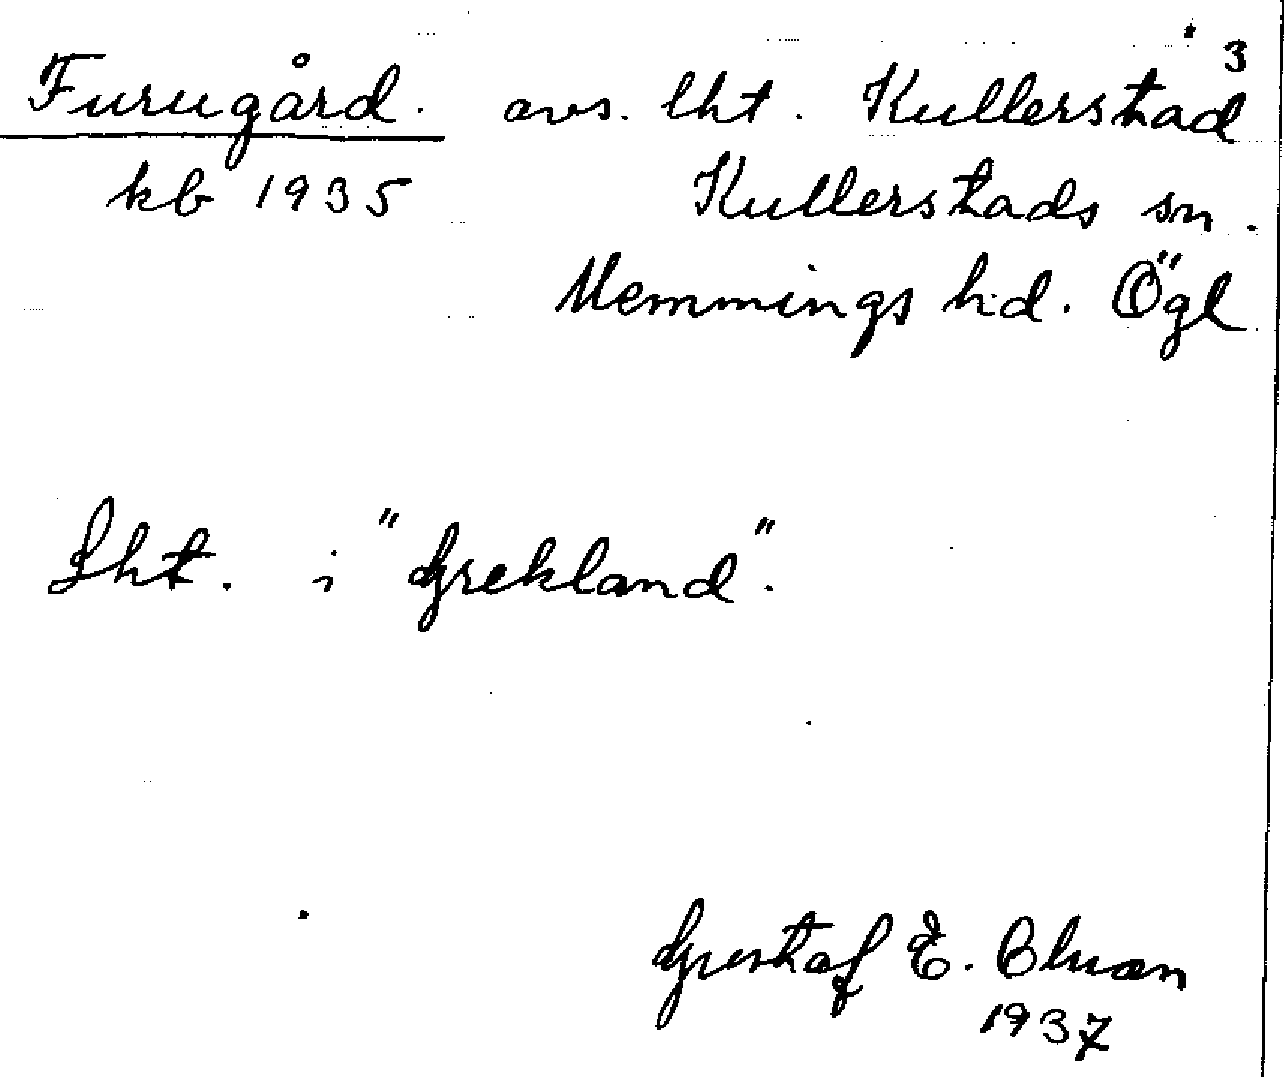 Furugård. avs. lht. Kullerstad 3
kb 1935 Kullerstads sn.
Memmings hd. Ögl
Lht. i "Grekland".
Gustaf E.
1937